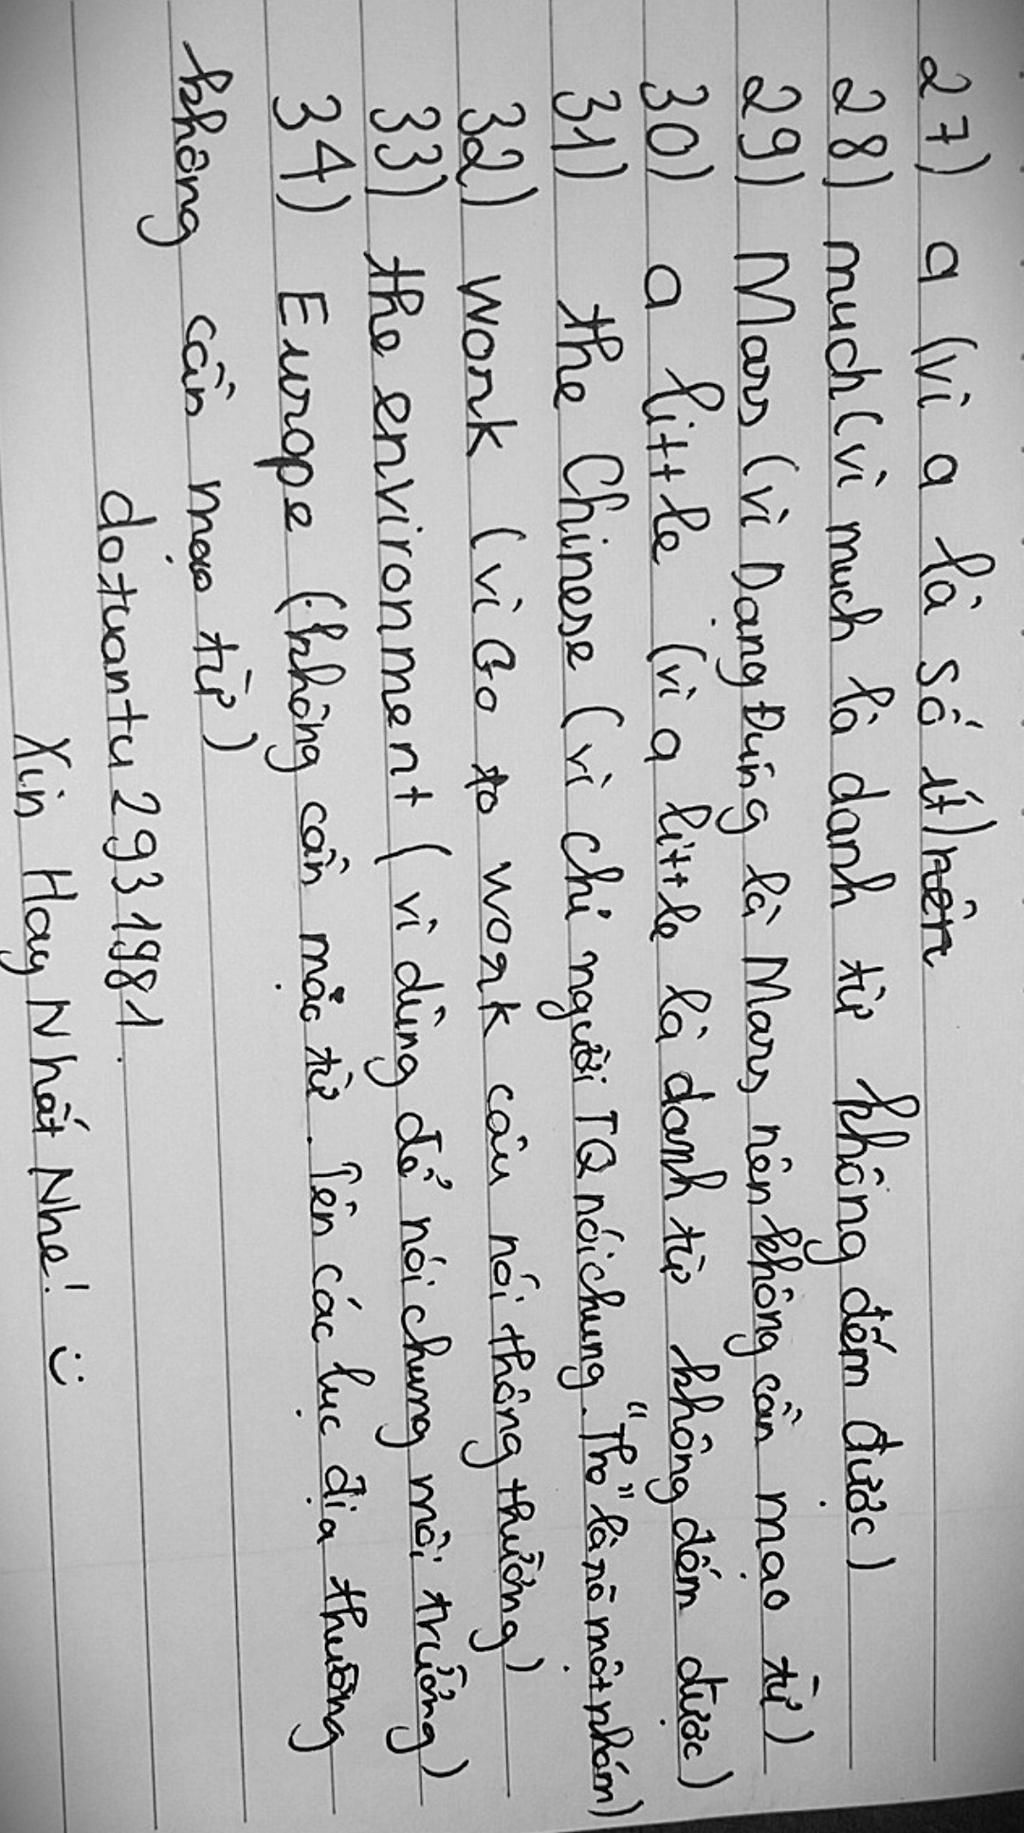 27) a (vì a là số ít) nên
28) much (vì much là danh từ không đếm được)
29) Mars (vì Dạng Đúng là Mars nên không cần mạo từ)
30) a little (vì a little là danh từ không đếm được)
31) the Chinese (vì chỉ người TQ nói chung. "The" là nó một nhóm)
32) work (vì Go to work câu nói thông thường)
33) the environment (vì dùng để nói chung môi trường)
34) Europe (không cần mạo từ. Tên các lục địa thường
không cần mạo từ)
dotuantu2931981.
Xin Hay Nhất Nhe! :)